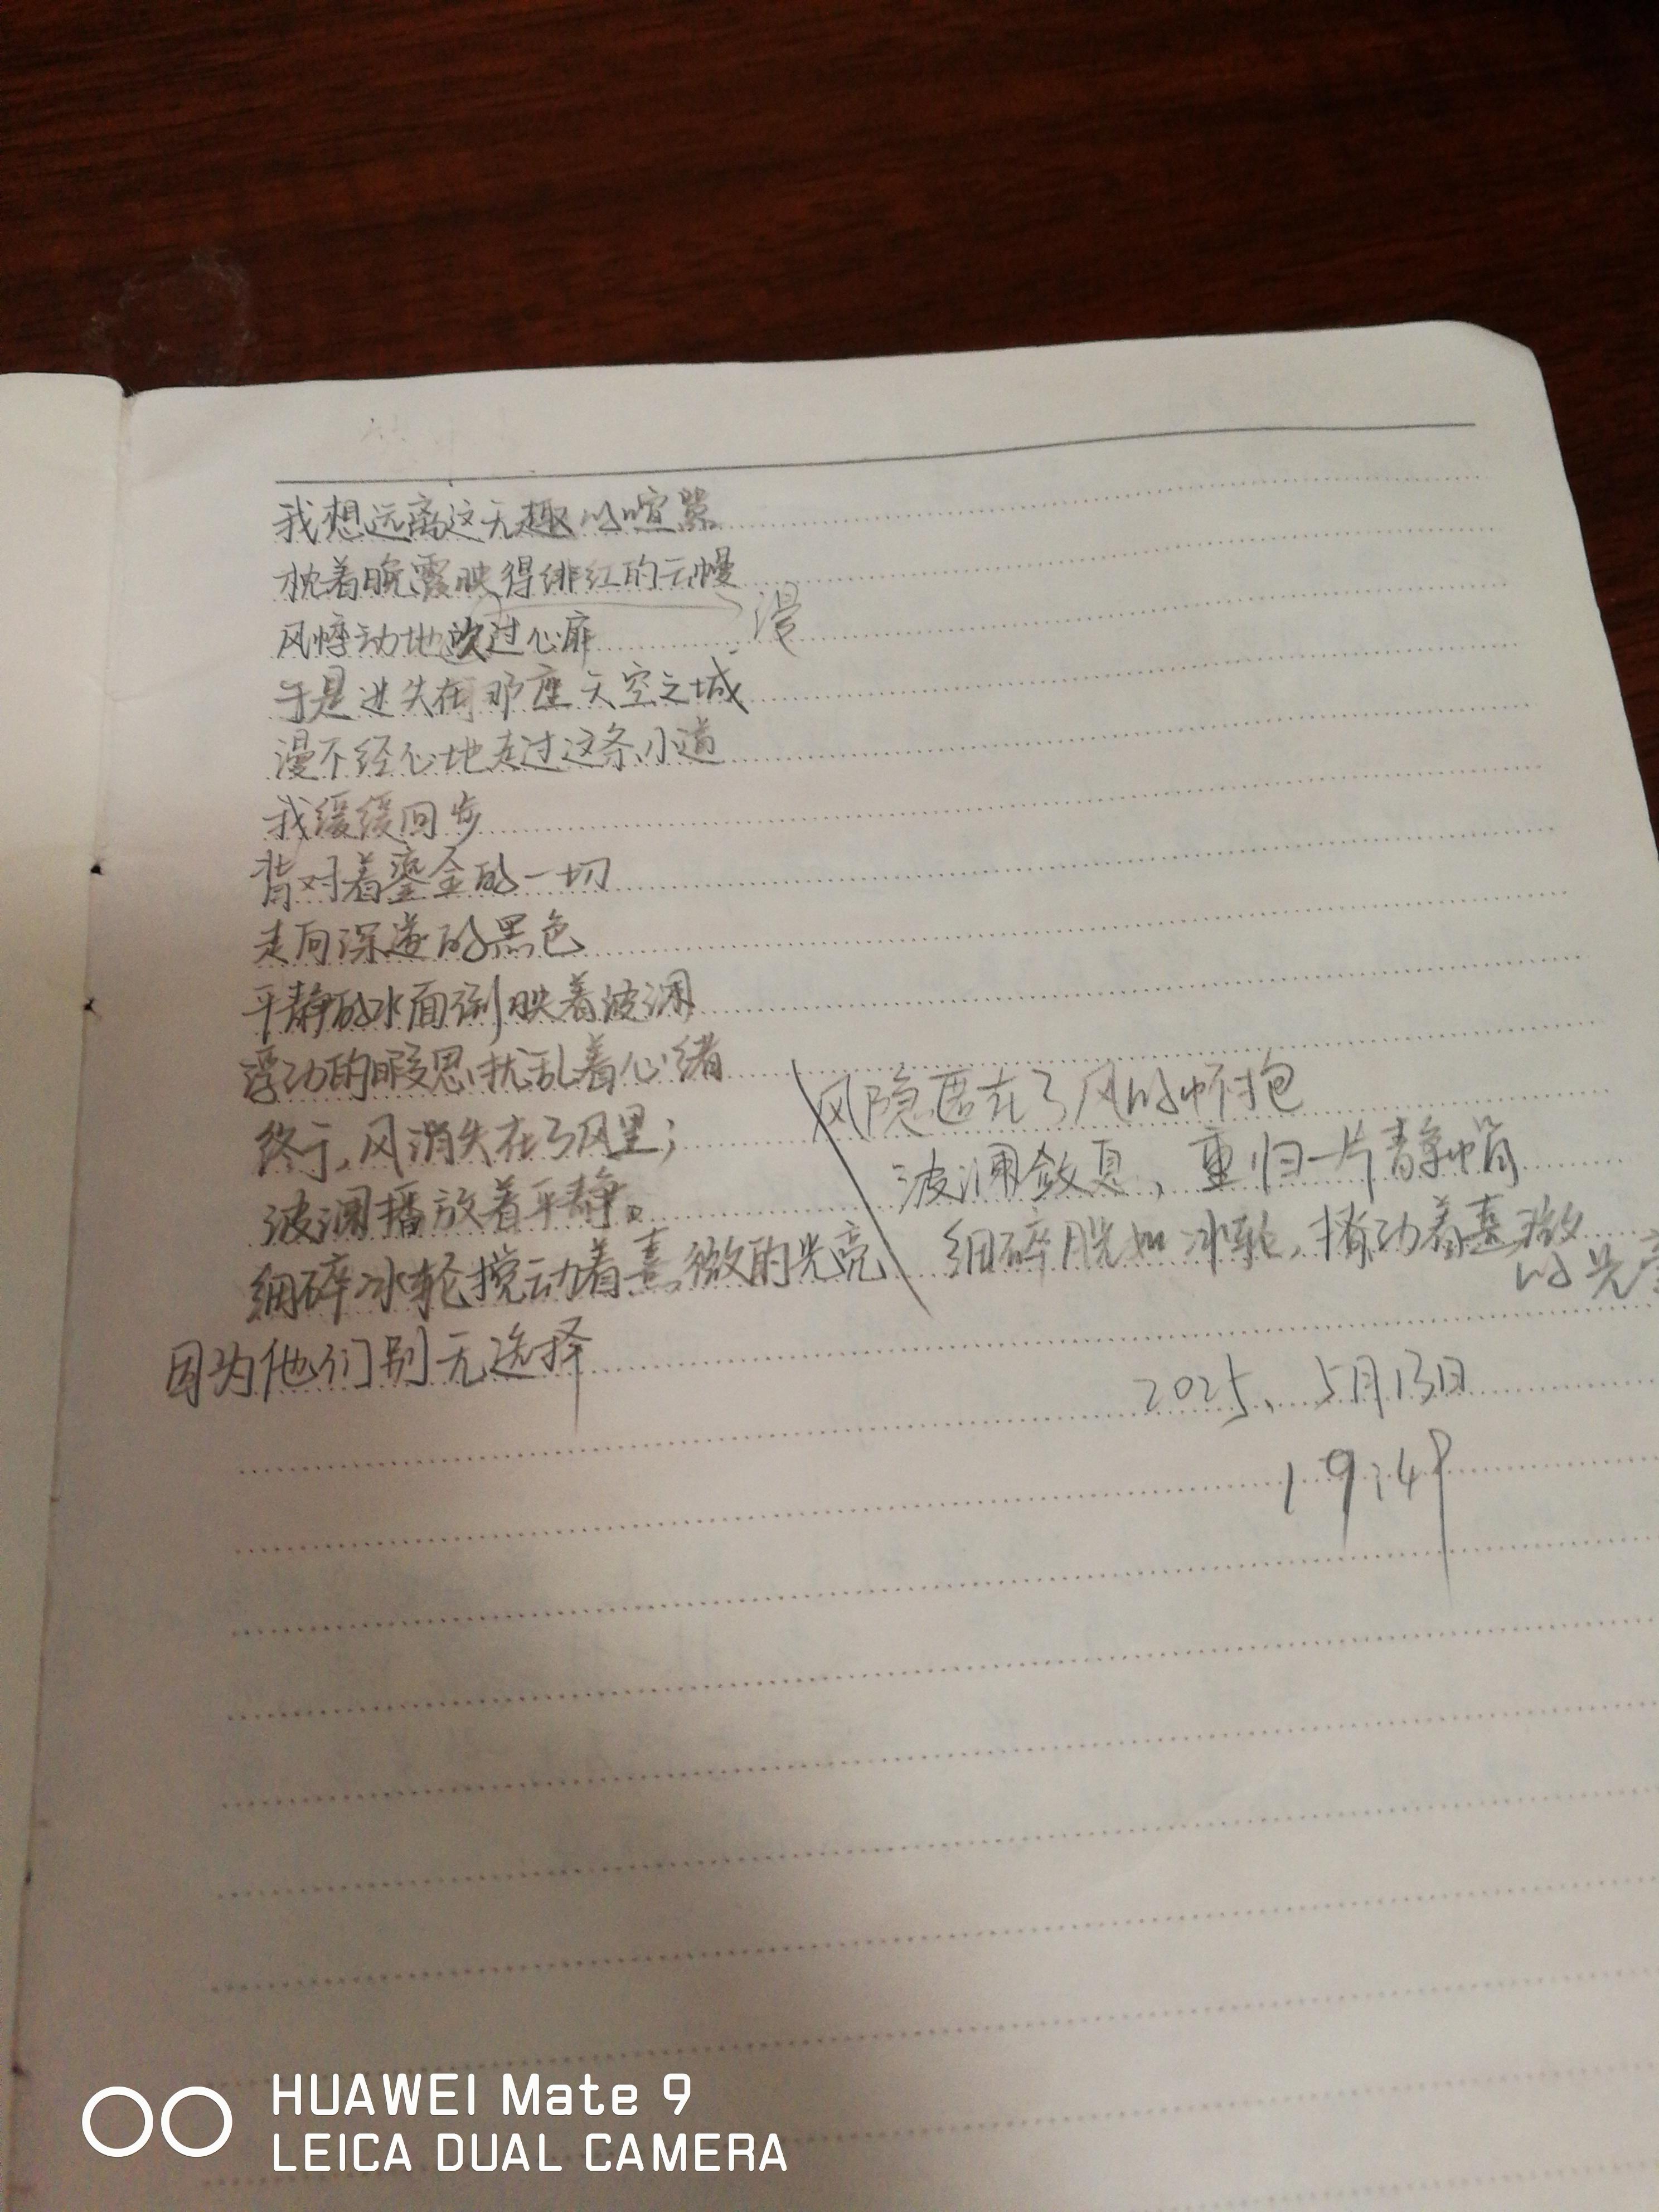 我想远离这无趣的喧嚣
枕着晚霞映得绯红的云幔
漫
风悸动地吹过心扉
于是迷失在那座天空之城
漫不经心地走过这条小道
我缓缓回步
背对着鎏金的一切
走向深邃的黑色
平静的水面倒映着波澜
浮动的暇思扰乱着心绪
终于,风消失在了风里;
波澜播放着平静。
细碎冰轮搅动着熹微的光亮
因为他们别无选择
风隐匿在了风的怀抱
波澜敛息,重归一片静悄
细碎月光如冰轮,撩动着熹微
的光亮
2025、5月13日
19:49
HUAWEI Mate 9
LEICA DUAL CAMERA